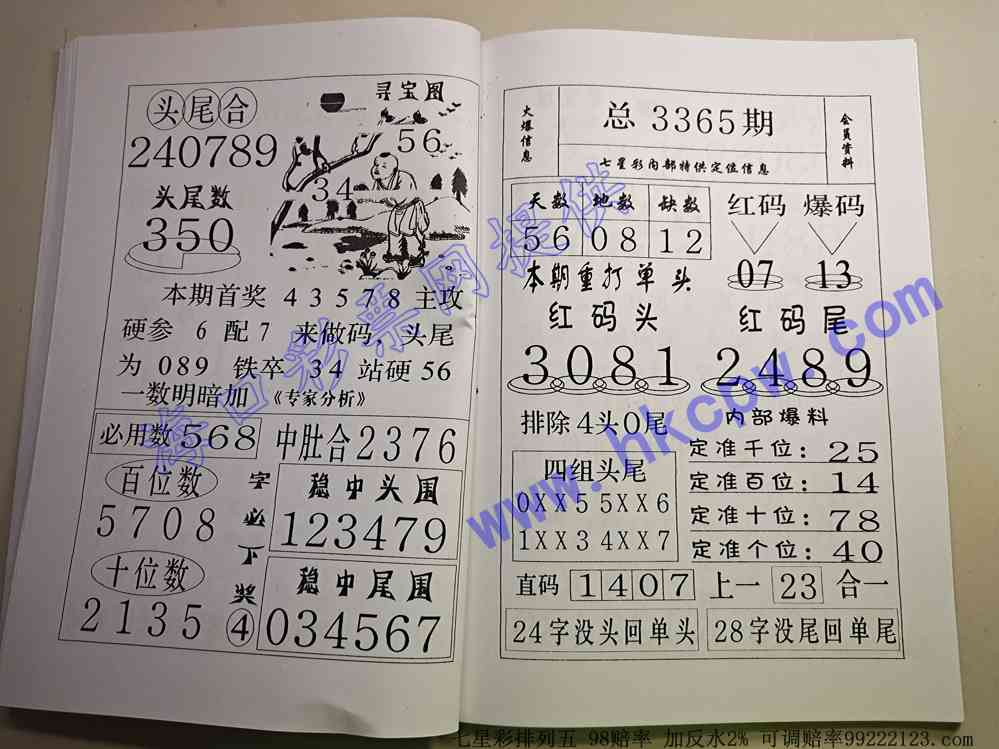 头尾合
240789
头尾数
350
寻宝图
56
34
本期首奖 4 3 5 7 8 主攻
硬参 6 配 7 来做码，头尾
为 089 铁卒 34 站硬 56
一数明暗加 《专家分析》
必用数 568
中肚合2376
百位数
5708
十位数
2135
字必下奖④
稳中头围
123479
稳中尾围
034567
火爆信息
总 3365期
七星彩内部特供定位信息
会员资料
天数 地数 缺数
56 08 12
红码 爆码
07 13
本期重打单头
红码头
3081
红码尾
2489
排除4头0尾
四组头尾
0XX5 5XX6
1XX3 4XX7
内部爆料
定准千位：25
定准百位：14
定准十位：78
定准个位：40
直码 1407 上一 23 合一
24字没头回单头
28字没尾回单尾
海口彩票网提供
www.hkcpw.com
七星彩排列五 98赔率 加反水2% 可调赔率99222123.com